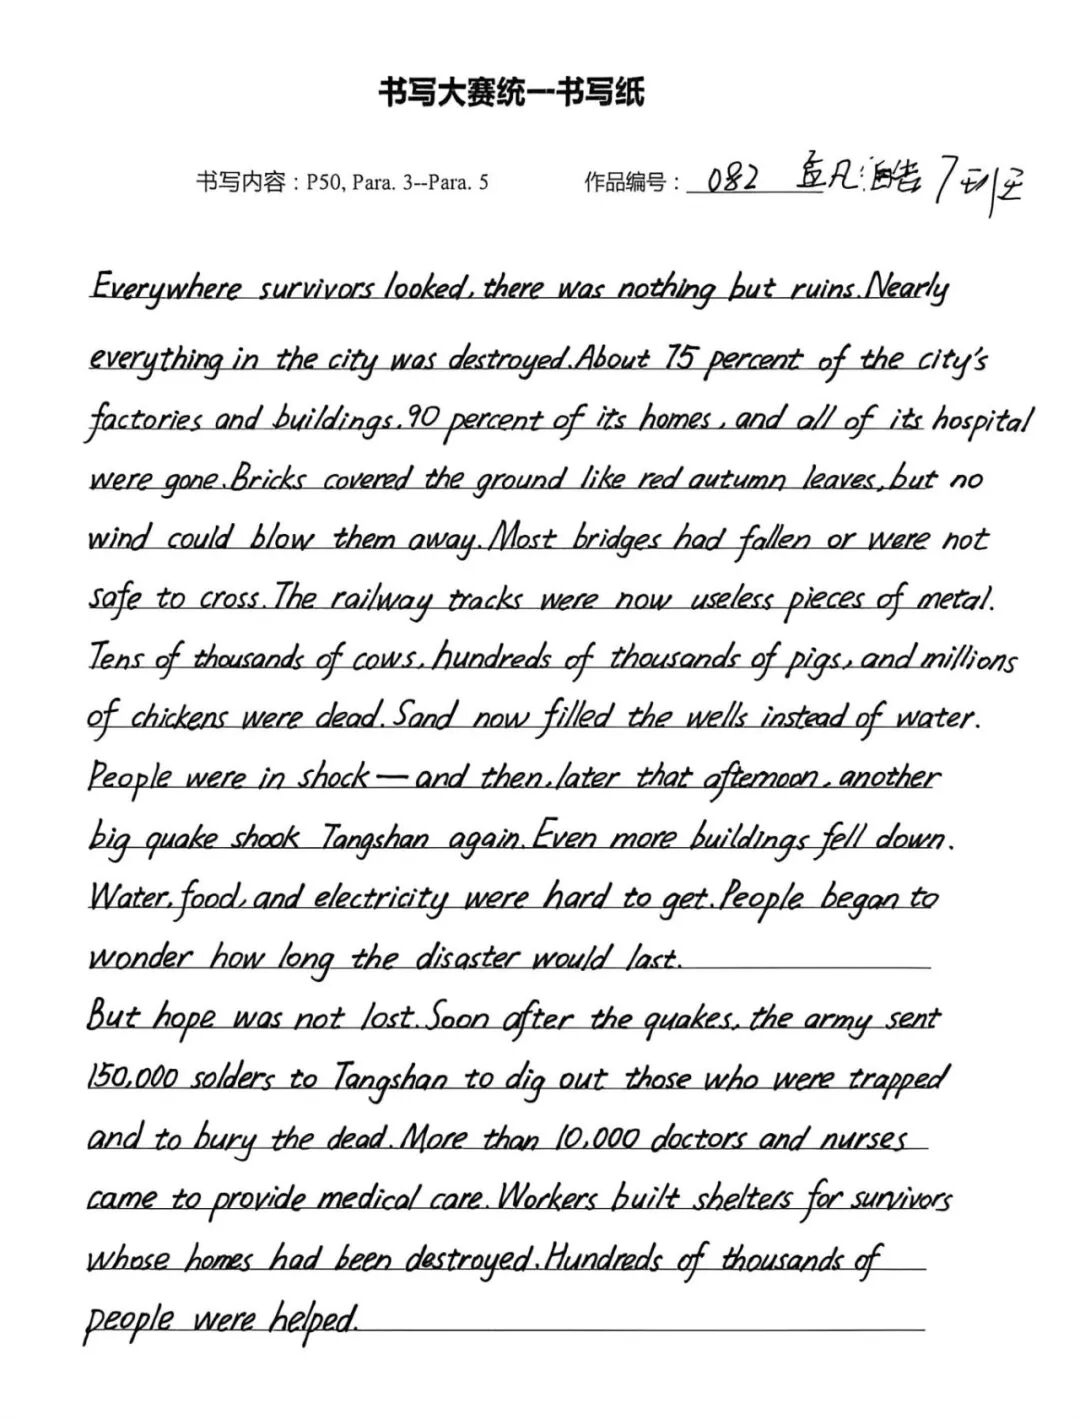 书写大赛统一书写纸
书写内容：P50, Para. 3--Para. 5 作品编号： 082 孟凡皓 7班
Everywhere survivors looked, there was nothing but ruins. Nearly
everything in the city was destroyed. About 75 percent of the city's
factories and buildings, 90 percent of its homes, and all of its hospital
were gone. Bricks covered the ground like red autumn leaves, but no
wind could blow them away. Most bridges had fallen or were not
safe to cross. The railway tracks were now useless pieces of metal.
Tens of thousands of cows, hundreds of thousands of pigs, and millions
of chickens were dead. Sand now filled the wells instead of water.
People were in shock — and then, later that afternoon, another
big quake shook Tangshan again. Even more buildings fell down.
Water, food, and electricity were hard to get. People began to
wonder how long the disaster would last.
But hope was not lost. Soon after the quakes, the army sent
150,000 solders to Tangshan to dig out those who were trapped
and to bury the dead. More than 10,000 doctors and nurses
came to provide medical care. Workers built shelters for survivors
whose homes had been destroyed. Hundreds of thousands of
people were helped.